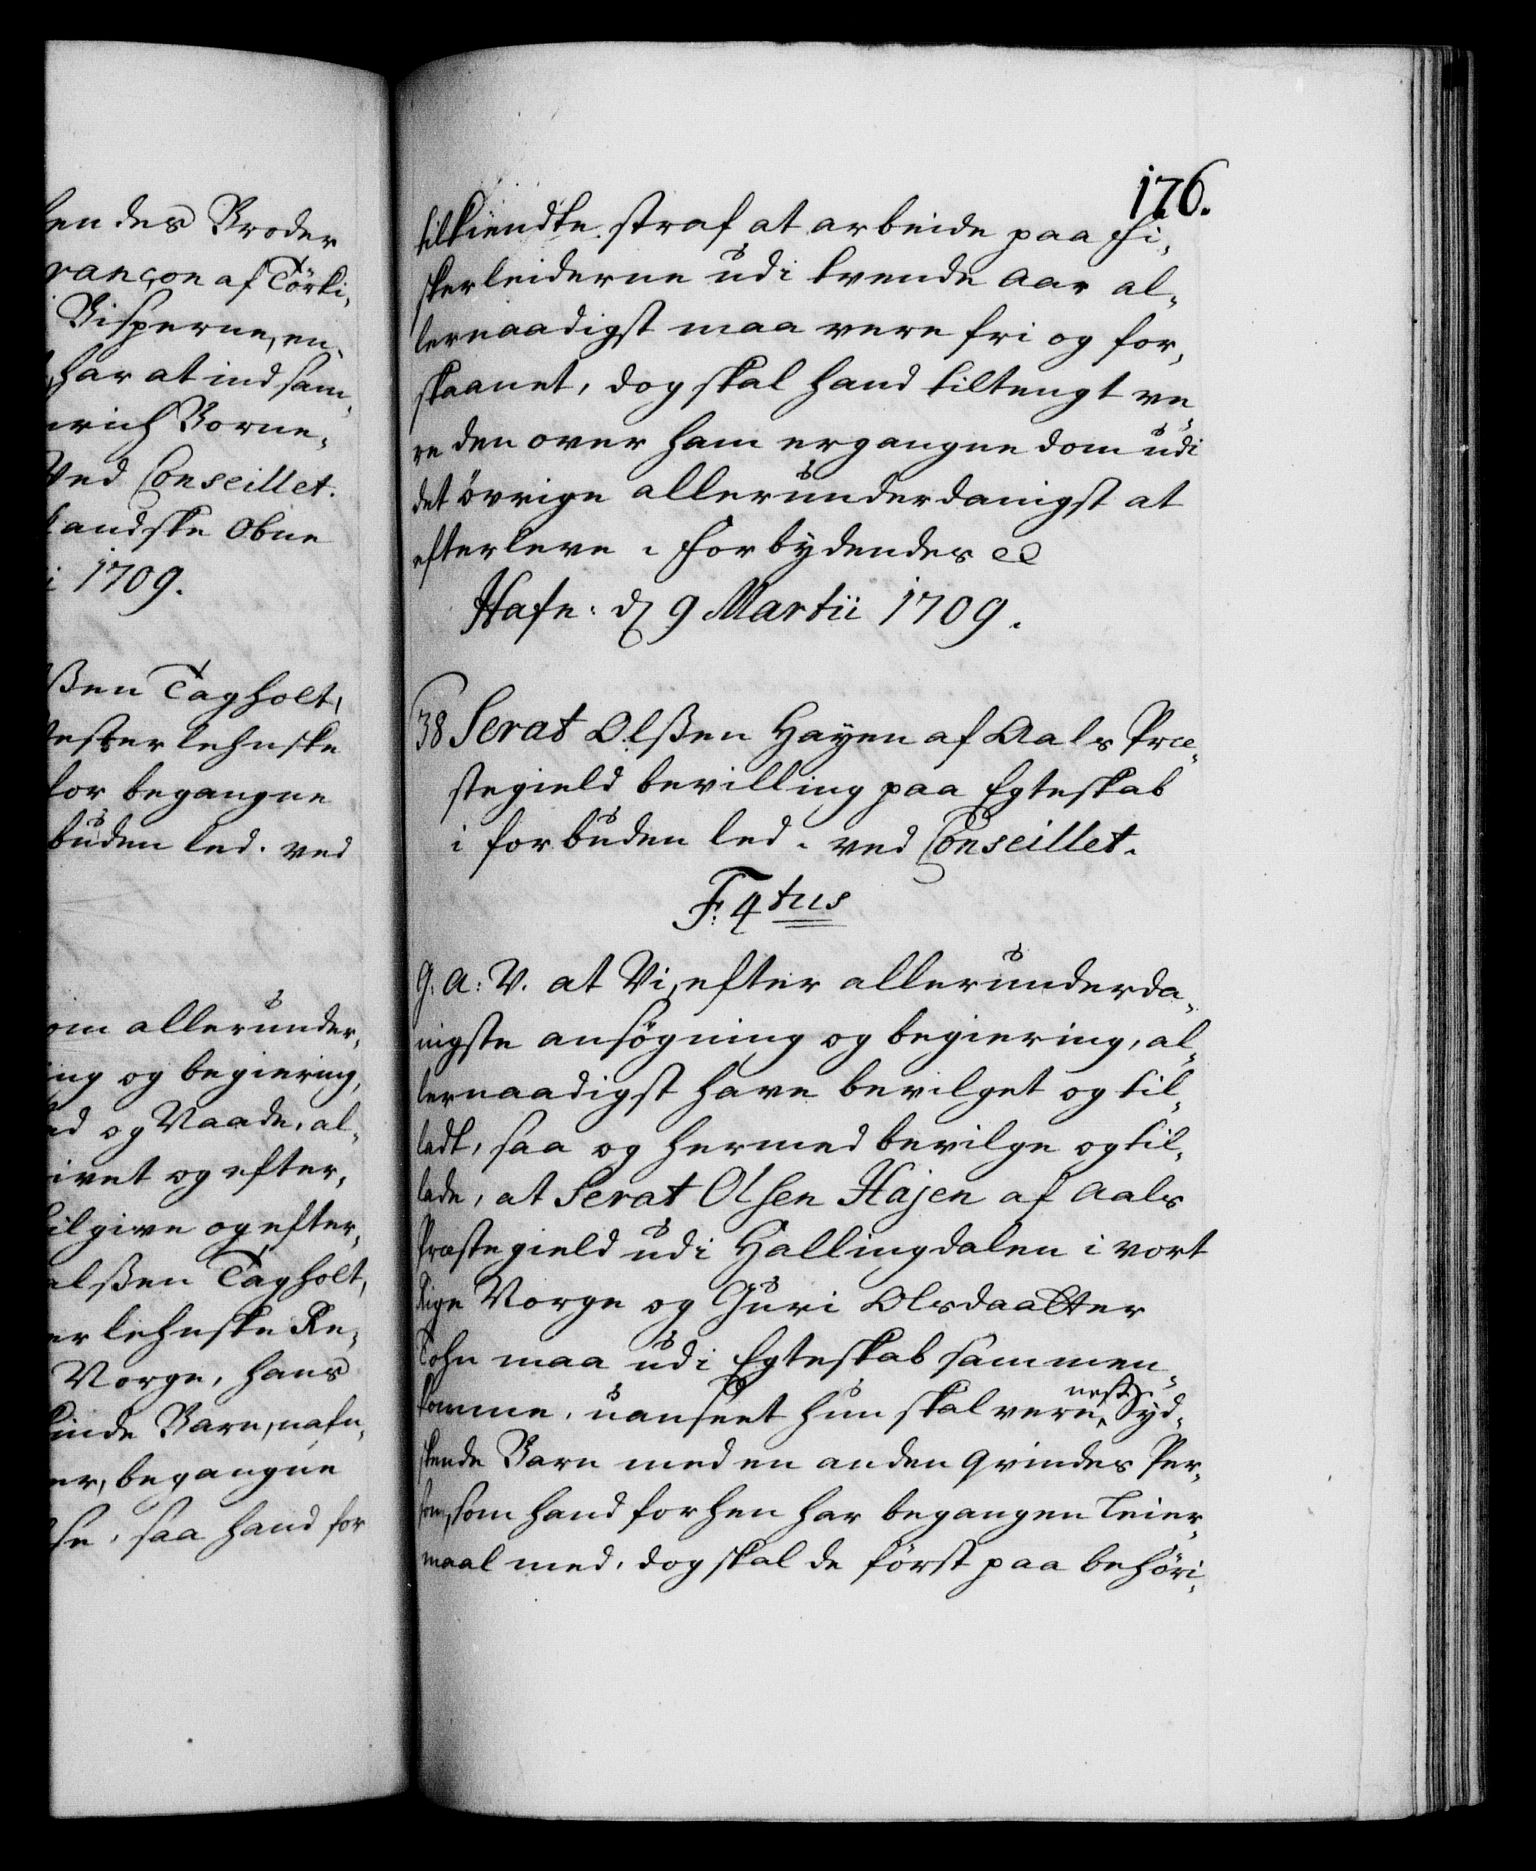 hendes Broder
rançon af Törki-
Bisperne, en-
har at indsam-
nrich Borne-
Ved Conseillet.
landske Obne
i 1709.
ßen Tagholt,
tester lehnske
for begangne
buden led. ved
om allerunder-
ing og begiering,
ed og Naade, al-
ivet og efter-
tilgive og efter-
elßen Tagholt,
er lehnske Re-
Norge, hans
kinde Barn, nafn-
er, begangne
se, saa hand for
176.
tilkiendte straf at arbeide paa Fi-
skerleierne udi tvende Aar al-
lernaadigst maa vere fri og for-
skaanet, dog skal hand tiltengt ve-
re den over ham ergangne dom udi
det övrige allerunderdanigst at
efterleve. Forbydendes &c
Hafn: d 9 Martii 1709.
38 Serat Olßen Hayen af Aals Præ-
stegield bevilling paa Egteskab
i forbuden led. ved Conseillet.
F: 4tus
G. A: V. at Vi, efter allerunderda-
nigste ansögning og begiering, al-
lernaadigst have bevilget og til-
ladt, saa og hermed bevilge og til-
lade, at Serat Olsen Hajen af Aals
Præstegield udi Hallingdalen i vort
Rige Norge og Guri Olsdaatter
Sohn maa udi Egteskab sammen-
komme, uanseet hun skal vere nest Syd-
skende Barn med en anden qvindes Per-
son, som hand forhen har begangen leier-
maal med, dog skal de först paa behöri-